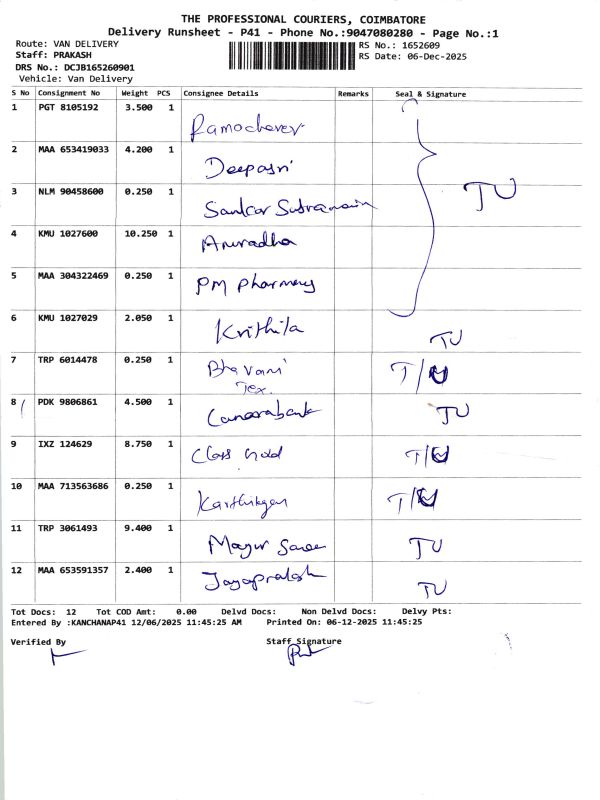 THE PROFESSIONAL COURIERS, COIMBATORE
Delivery Runsheet - P41 - Phone No.:9047080280 - Page No.:1
Route: VAN DELIVERY
RS No.: 1652609
Staff: PRAKASH
RS Date: 06-Dec-2025
DRS No.: DCJB165260901
Vehicle: Van Delivery
S No Consignment No Weight PCS Consignee Details Remarks Seal & Signature
1 PGT 8105192 3.500 1
2 MAA 653419033 4.200 1 Deepasri
3 NLM 90458600 0.250 1 Sankar TU
4 KMU 1027600 10.250 1 Anuradha
5 MAA 304322469 0.250 1 PM Pharmacy
6 KMU 1027029 2.050 1 Krithila TU
7 TRP 6014478 0.250 1 Bhavani Tex. T/U
8 PDK 9806861 4.500 1 Canarabank TU
9 IXZ 124629 8.750 1 Class Gold T/U
10 MAA 713563686 0.250 1 Karthikeyan T/U
11 TRP 3061493 9.400 1 Mayur Saree TU
12 MAA 653591357 2.400 1 Jayaprakash TU
Tot Docs: 12 Tot COD Amt: 0.00 Delvd Docs: Non Delvd Docs: Delvy Pts:
Entered By :KANCHANAP41 12/06/2025 11:45:25 AM Printed On: 06-12-2025 11:45:25
Verified By Staff Signature